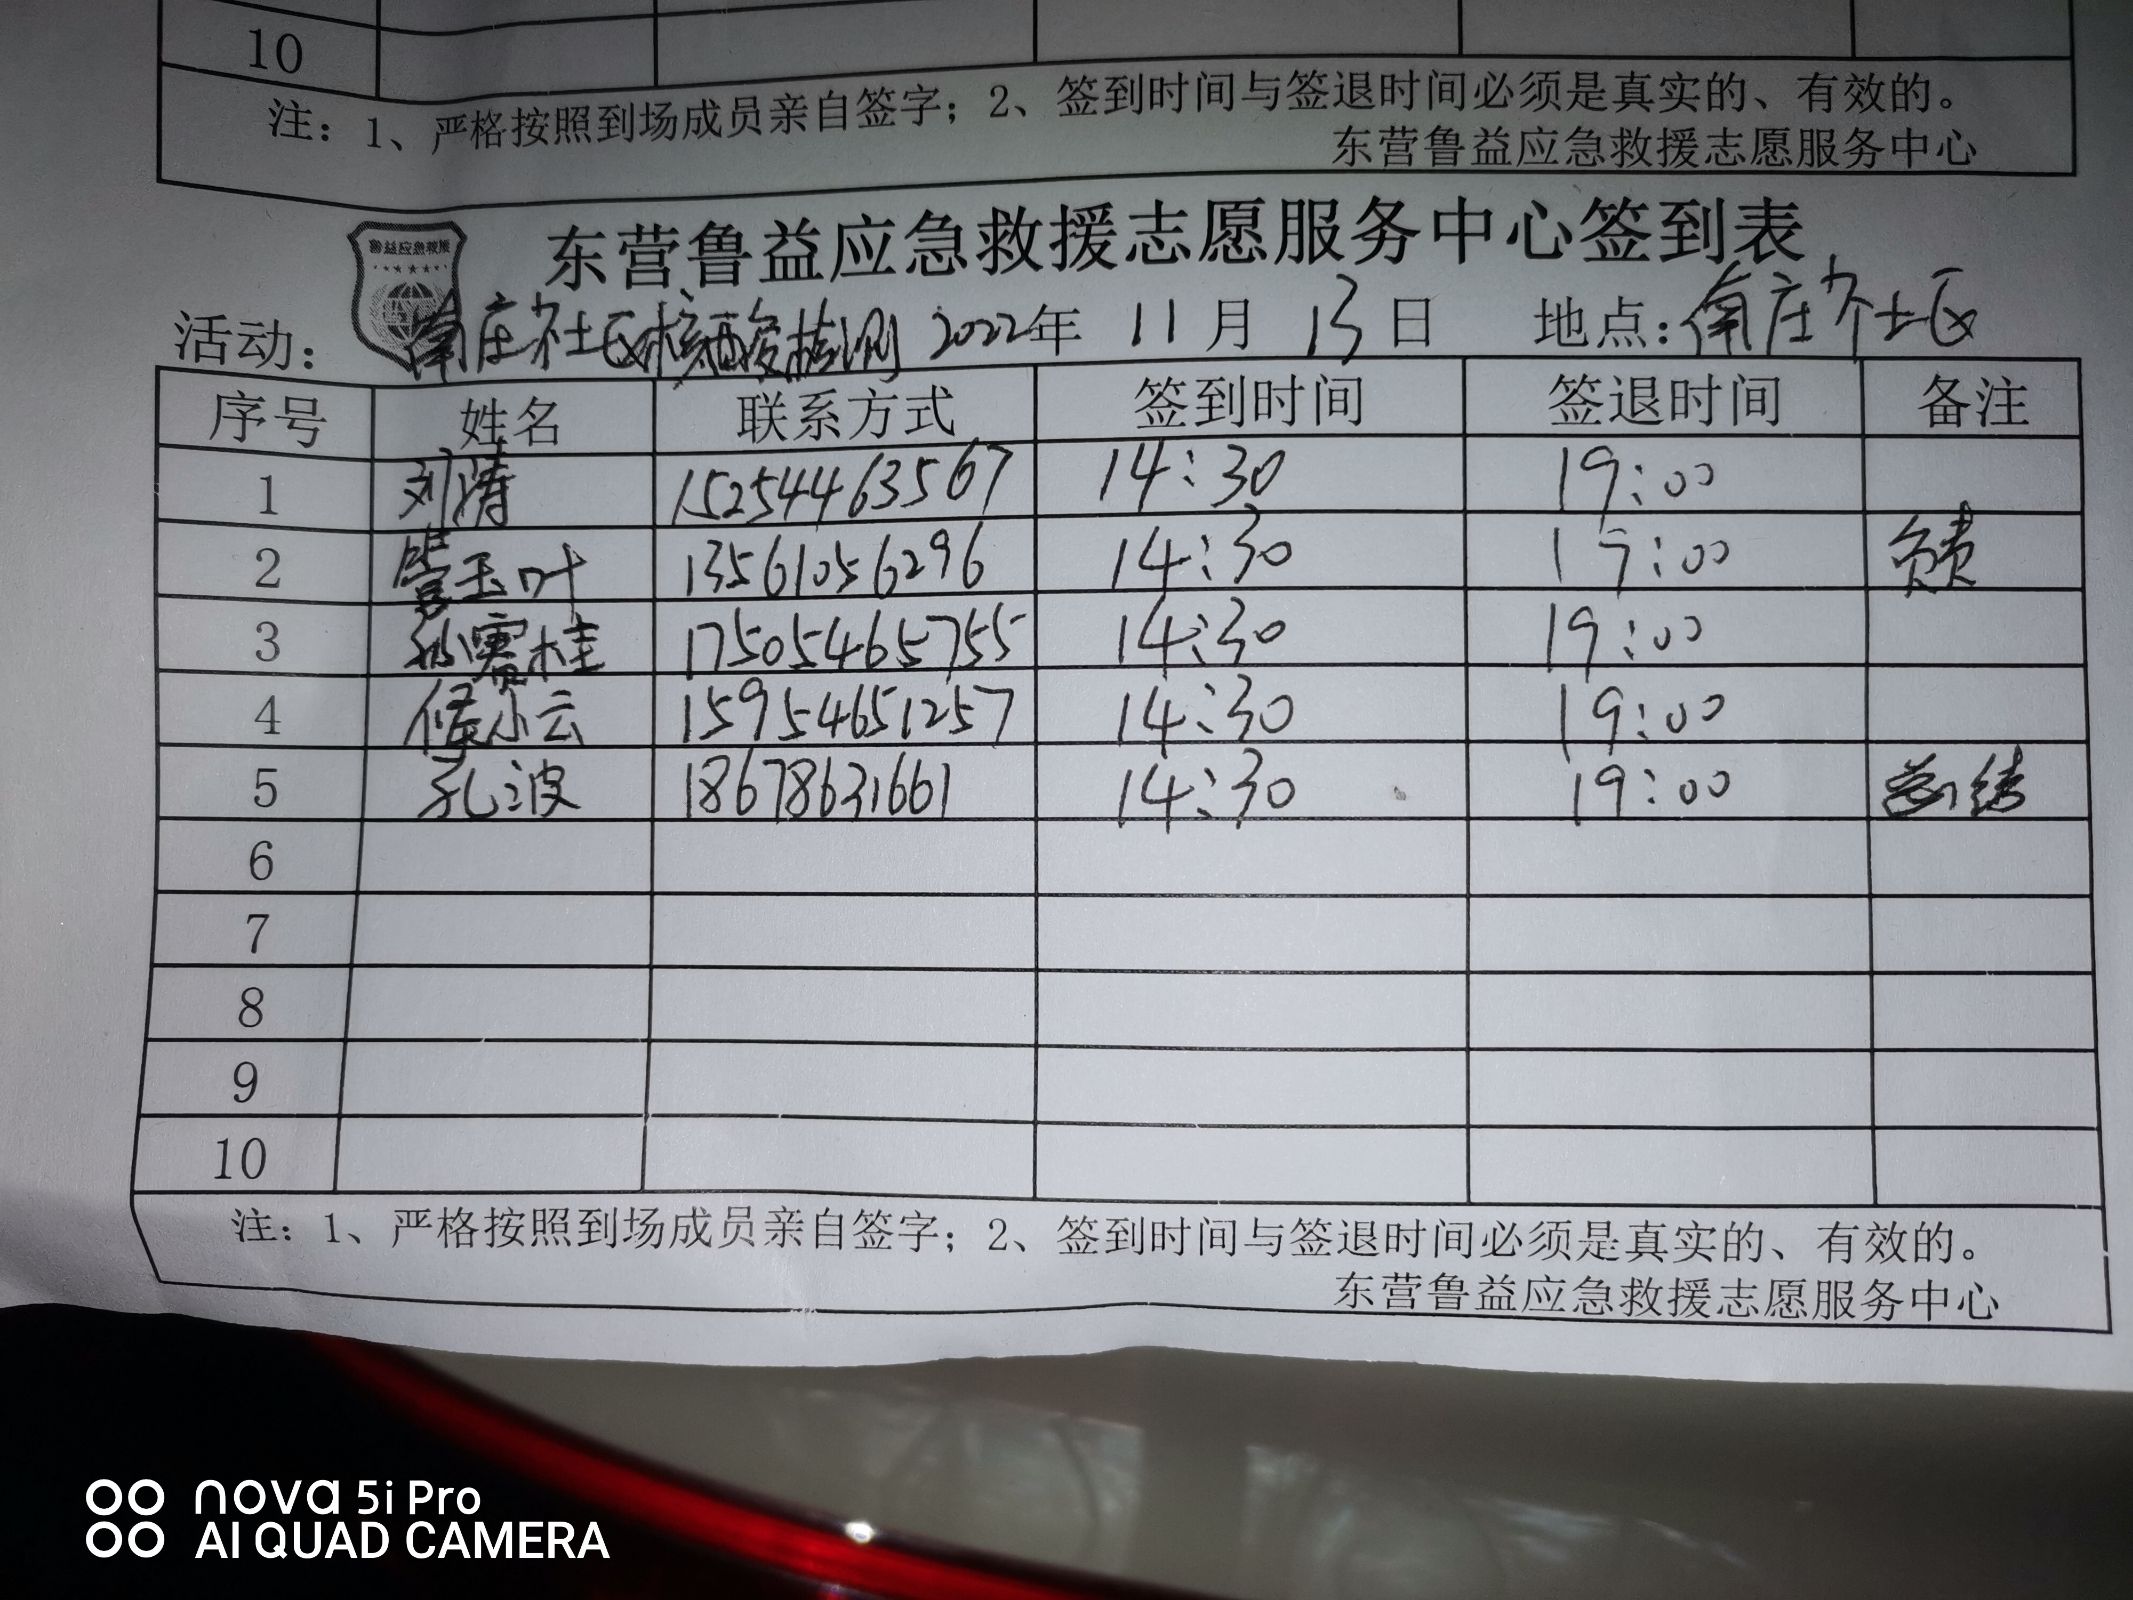 10
注：1、严格按照到场成员亲自签字；2、签到时间与签退时间必须是真实的、有效的。
东营鲁益应急救援志愿服务中心
鲁益应急救援
东营鲁益应急救援志愿服务中心签到表
活动：南庄社区核酸检测 2022年 11月 13日 地点：南庄社区
序号 姓名 联系方式 签到时间 签退时间 备注
1 刘涛 15254463567 14:30 19:00
2 管玉叶 13561056296 14:30 19:00 负责
3 孙霞桂 17505465755 14:30 19:00
4 侯小云 15954651257 14:30 19:00
5 孔波 18678631661 14:30 19:00 总结
6
7
8
9
10
注：1、严格按照到场成员亲自签字；2、签到时间与签退时间必须是真实的、有效的。
东营鲁益应急救援志愿服务中心
nova 5i Pro
AI QUAD CAMERA